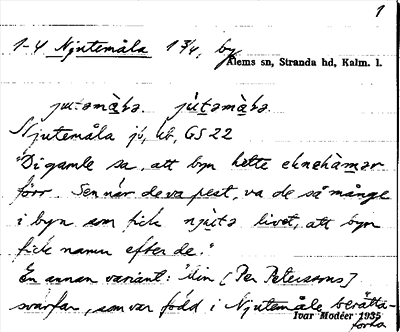 1
1-4 Njutemåla 1 3/4, by
Ålems sn, Stranda hd, Kalm. l.
jutəmà̱lsə. jùtəmà̱lsə
Njutemåla jb, kb, GS 22
"Di gamle sa, att byn hette eknehàmər
förr. Sen när de va pest, va de så månge
i byn som fick njùtə livet, att byn
fick namn efter de."
En annan variant: "Min [Per Peterssons]
svärfar, som var född i Njutemåla berätta-
Ivar Modéer 1935